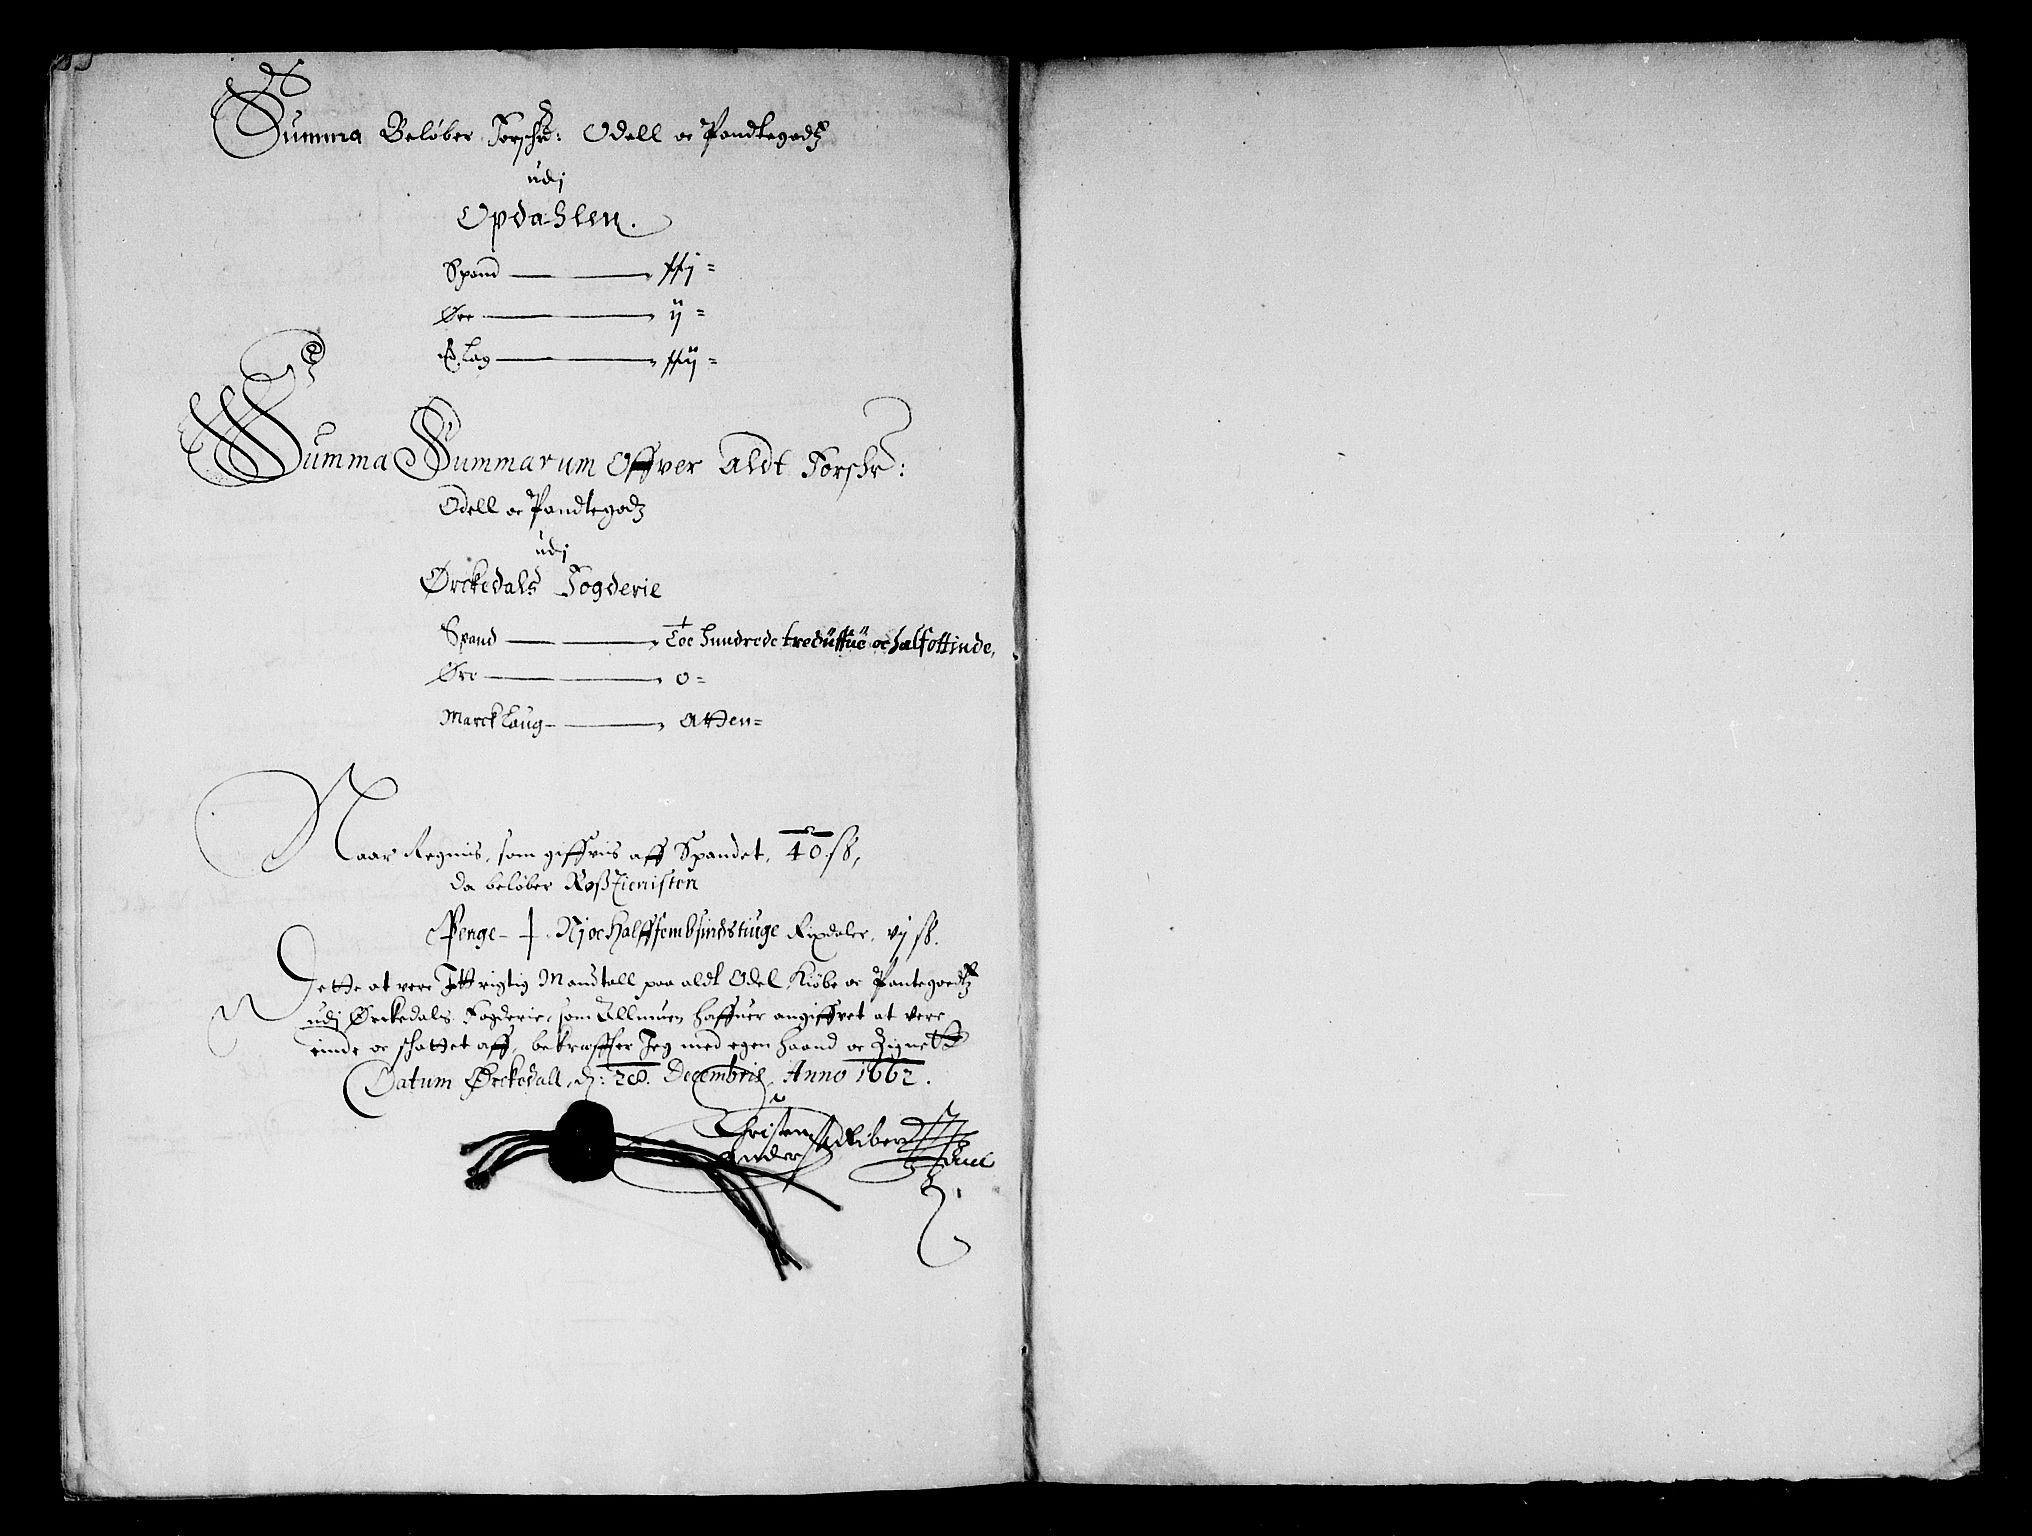 Summa Beløber Forschr: Odell oc Pandtegodz
udj
Opdahlen.
Spand
Øre ij
Laug
Summa Summarum Offver aldt Forschr:
Odell oc Pandtegodz
udj
Ørckedals Fogderie
Spand Toe hundrede oc halfottinde,
Øre 0
Marcklaug Atten
Naar Regnis, som giffvis aff Spandet, 40 sk,
da beløber Roßtienisten
Penge Nj oc halfffembsindstiuge Rixdaler, vj sk.
Dette at vere Ett rigtig Mandtall paa aldt Odel Kiøbe oc Pantegoedtz
udj Ørckedals Fogderie, som Allmuen haffuer angiffvet at vere
einde oc schattet aff, bekræffter Jeg med egen haand oc Zignett
Datum Ørckedall, d: 28. Decembris, Anno 1662.
Christen